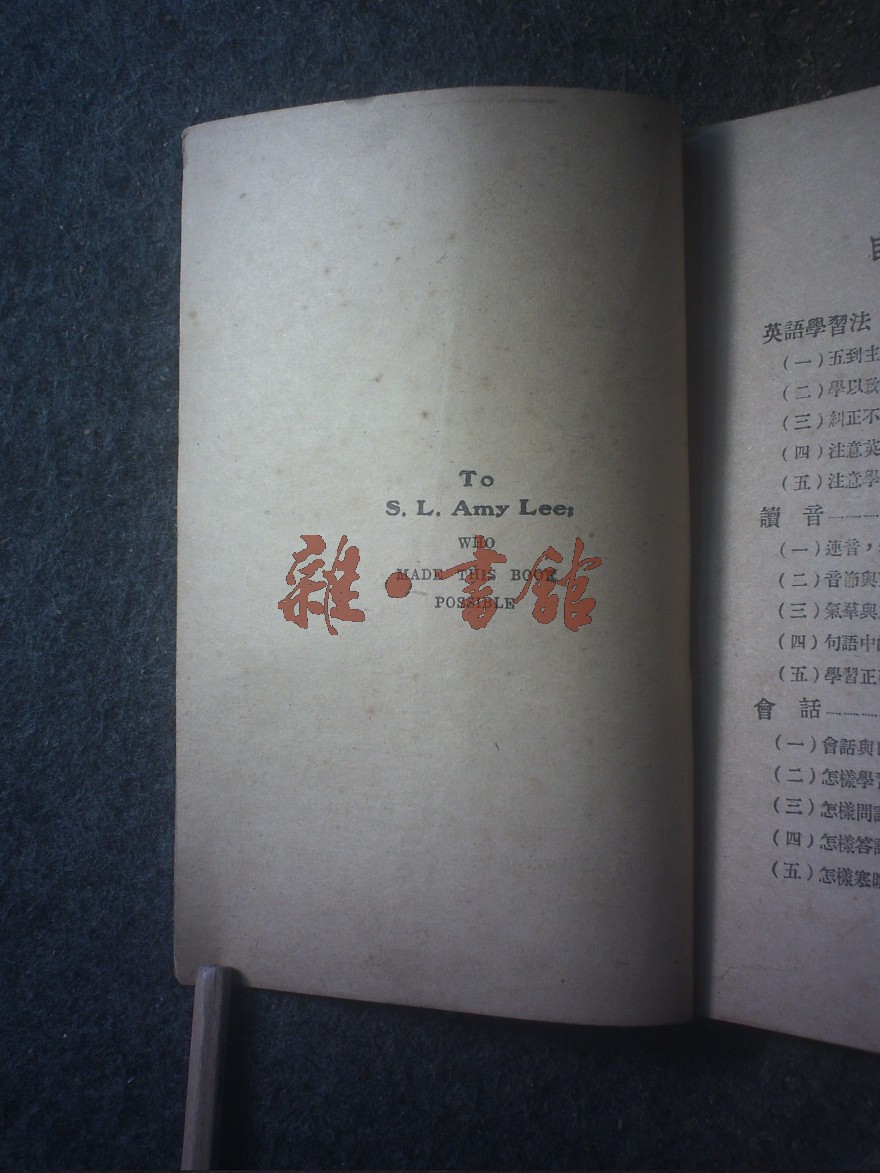 To
S. L. Amy Lee;
WHO
MADE THIS BOOK
POSSIBLE
雜·書館
英語學習法
(一)五到主
(二)學以致
(三)糾正不
(四)注意英
(五)注意學
讀 音
(一)連音，
(二)音節與
(三)氣羣與
(四)句語中的
(五)學習正確
會 話
(一)會話與
(二)怎樣學習
(三)怎樣問
(四)怎樣答
(五)怎樣寒暄